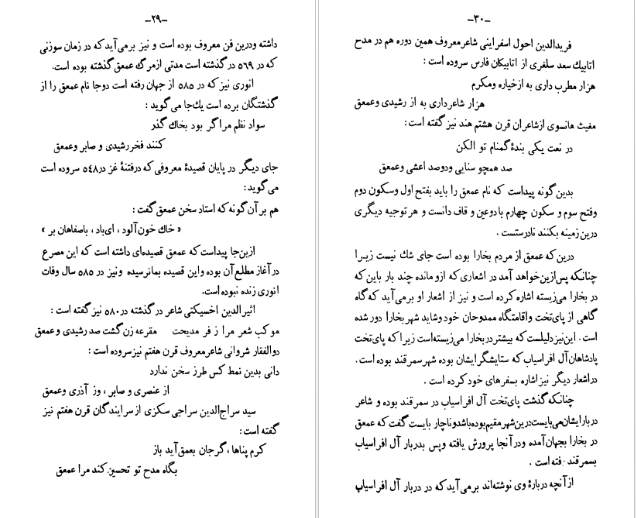 -۲۹-
داشته ودرین فن معروف بوده است و نیز برمی‌آید که در زمان سوزنی
که در ۵۶۹ در گذشته است مدتی ازمرگ عمعق گذشته بوده است.
انوری نیز که در ۵۸۵ از جهان رفته است دوجا نام عمعق را از
گذشتگان برده است یك‌جا می‌گوید :
سواد نظم مرا گر بود بخاك گذر
کنند فخر رشیدی و صابر وعمعق
جای دیگر در پایان قصیدۀ معروفی که درفتنۀ غز در۵۴۸ سروده است
می‌گوید :
هم بر آن گونه که استاد سخن عمعق گفت :
« خاك خون‌آلود ، ای‌باد ، باصفاهان بر »
ازین‌جا پیداست که عمعق قصیده‌ای داشته است که این مصرع
درآغاز مطلع آن بوده واین قصیده بمانرسیده ونیز در ۵۸۵ سال وفات
انوری زنده نبوده است.
اثیرالدین اخسیکتی شاعر در گذشته در۵۸۰ نیز گفته است :
موکب شعر مرا ز فر مدیحت مقرعه زن گشت صد رشیدی و عمعق
ذوالفقار شروانی شاعرمعروف قرن هفتم نیزسروده است :
دانی بدین نمط کس طرز سخن ندارد
از عنصری و صابر ، وز آذری وعمعق
سید سراج‌الدین سراجی سکزی از سرایندگان قرن هفتم نیز
گفته است :
کرم پناها ، گرجان بعمق آید باز
بگاه مدح تو تحسین کند مرا عمعق
-۳۰-
فریدالدین احول اسفراینی شاعرمعروف همین دوره هم در مدح
اتابیك سعد سلغری از اتابیکان فارس سروده است :
هزار مطرب داری به ازخیاره ومکرم
هزار شاعرداری به از رشیدی وعمعق
مغیث هانسوی ازشاعران قرن هشتم هند نیز گفته است :
در نعت یکی بندۀ گمنام تو الکن
صد همچو سنایی ودوصد اعشی وعمعق
بدین گونه پیداست که نام عمعق را باید بفتح اول وسکون دوم
وفتح سوم و سکون چهارم بادوعین و قاف دانست و هر توجیه دیگری
درین زمینه بکنند نادرستست .
درین که عمعق از مردم بخارا بوده است جای شك نیست زیرا
چنانکه پس‌ازین‌خواهد آمد در اشعاری که ازو مانده چند بار باین که
در بخارا می‌زیسته اشاره کرده است و نیز از اشعار او برمی‌آید که گاه
گاهی از پای‌تخت واقامتگاه ممدوحان خود وشاید شهر بخارا دور شده
است . این‌نیز دلیلست که بیشتر در بخارا می‌زیسته‌است زیرا که پای‌تخت
پادشاهان آل افراسیاب که ستایشگر ایشان بوده شهر سمرقند بوده است.
دراشعار دیگر نیز اشاره بسفرهای خود کرده است .
چنانکه گذشت پای‌تخت آل افراسیاب در سمرقند بوده و شاعر
دربارایشان می‌بایست درین شهر مقیم بوده باشد و ناچار بایست گفت که عمعق
در بخارا بجهان آمده ودر آنجا پرورش یافته وپس بدربار آل افراسیاب
بسمرقند رفته است .
از آنچه دربارۀ وی نوشته‌اند برمی‌آید که در دربار آل افراسیاب